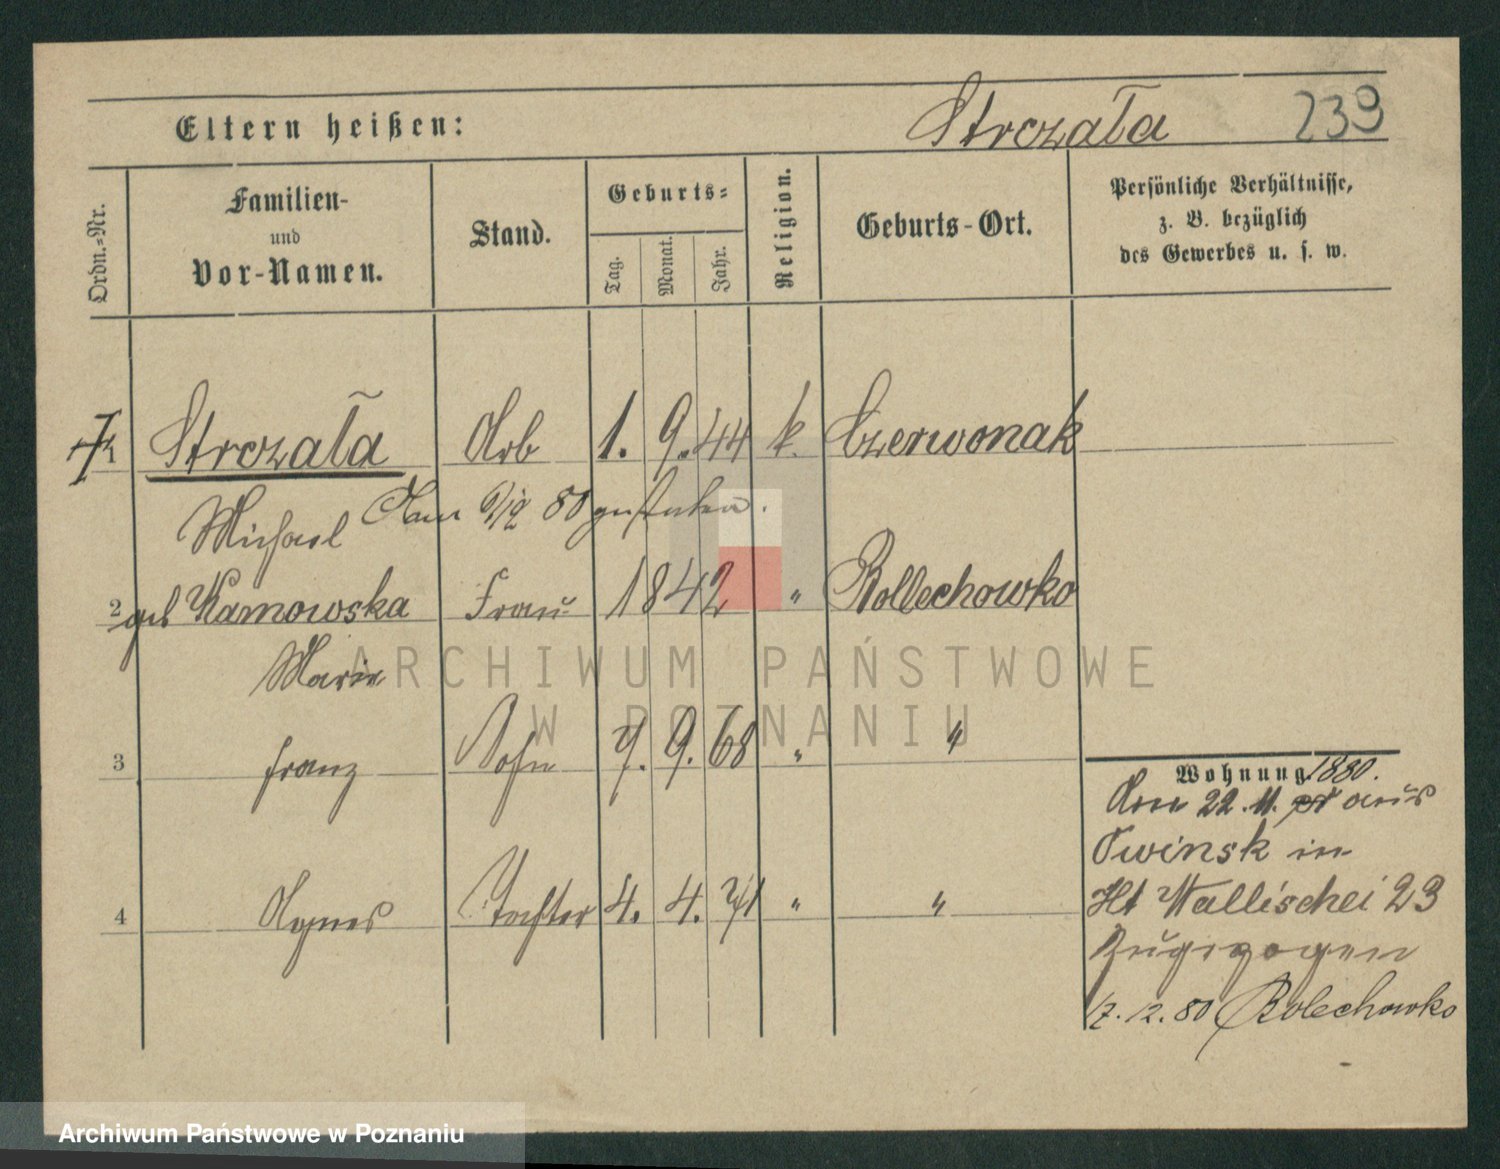 Eltern heißen:
Strczała 239
Ordn.-Nr.
Familien-
und
Vor-Namen.
Stand.
Geburts-
Tag.
Monat.
Jahr.
Religion.
Geburts-Ort.
Persönliche Verhältnisse,
z. B. bezüglich
des Gewerbes u. s. w.
1 Strczała Arb 1. 9. 44 k. Czerwonak
Michael
80 gestorben.
2 geb Kamowska Frau 1842 " Bollechowko
Marie
3 Franz Sohn 7. 9. 68 " "
4 Agnes Tochter 4. 4. 71 " "
Wohnung 1880.
Am 22. 11. aus
Owinsk in
Ht Wallischei 23
Zugezogen
/2. 12. 80 Bolechowko
ARCHIWUM PAŃSTWOWE
W POZNANIU
Archiwum Państwowe w Poznaniu